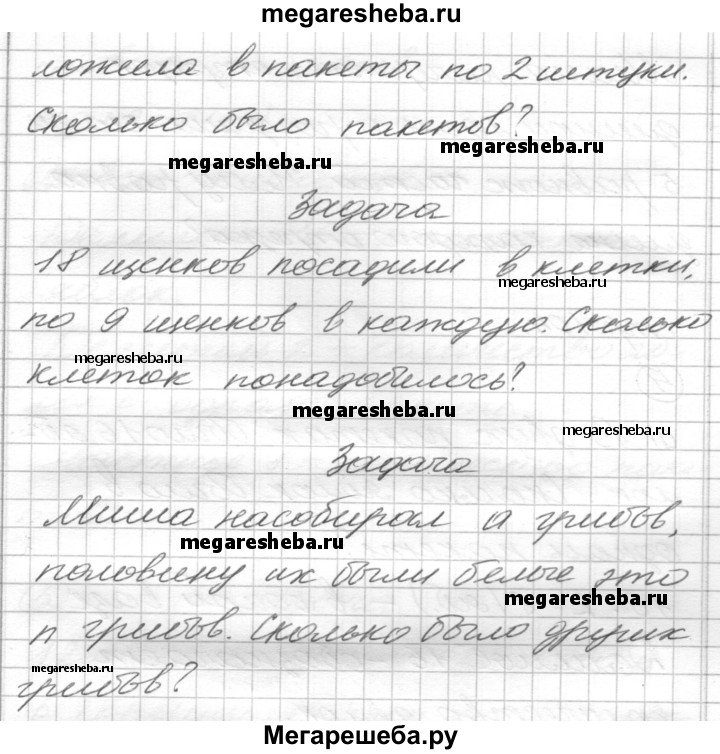 megaresheba.ru
ложила в пакеты по 2 штуки.
Сколько было пакетов?
megaresheba.ru
megaresheba.ru
Задача
18 щенков посадили в клетки,
megaresheba.ru
по 9 щенков в каждую. Сколько
megaresheba.ru
клеток понадобилось?
megaresheba.ru
megaresheba.ru
Задача
Миша насобирал а грибов,
megaresheba.ru
половину их были белые это
megaresheba.ru
n грибов. Сколько было других
megaresheba.ru
грибов?
Мегарешеба.ру